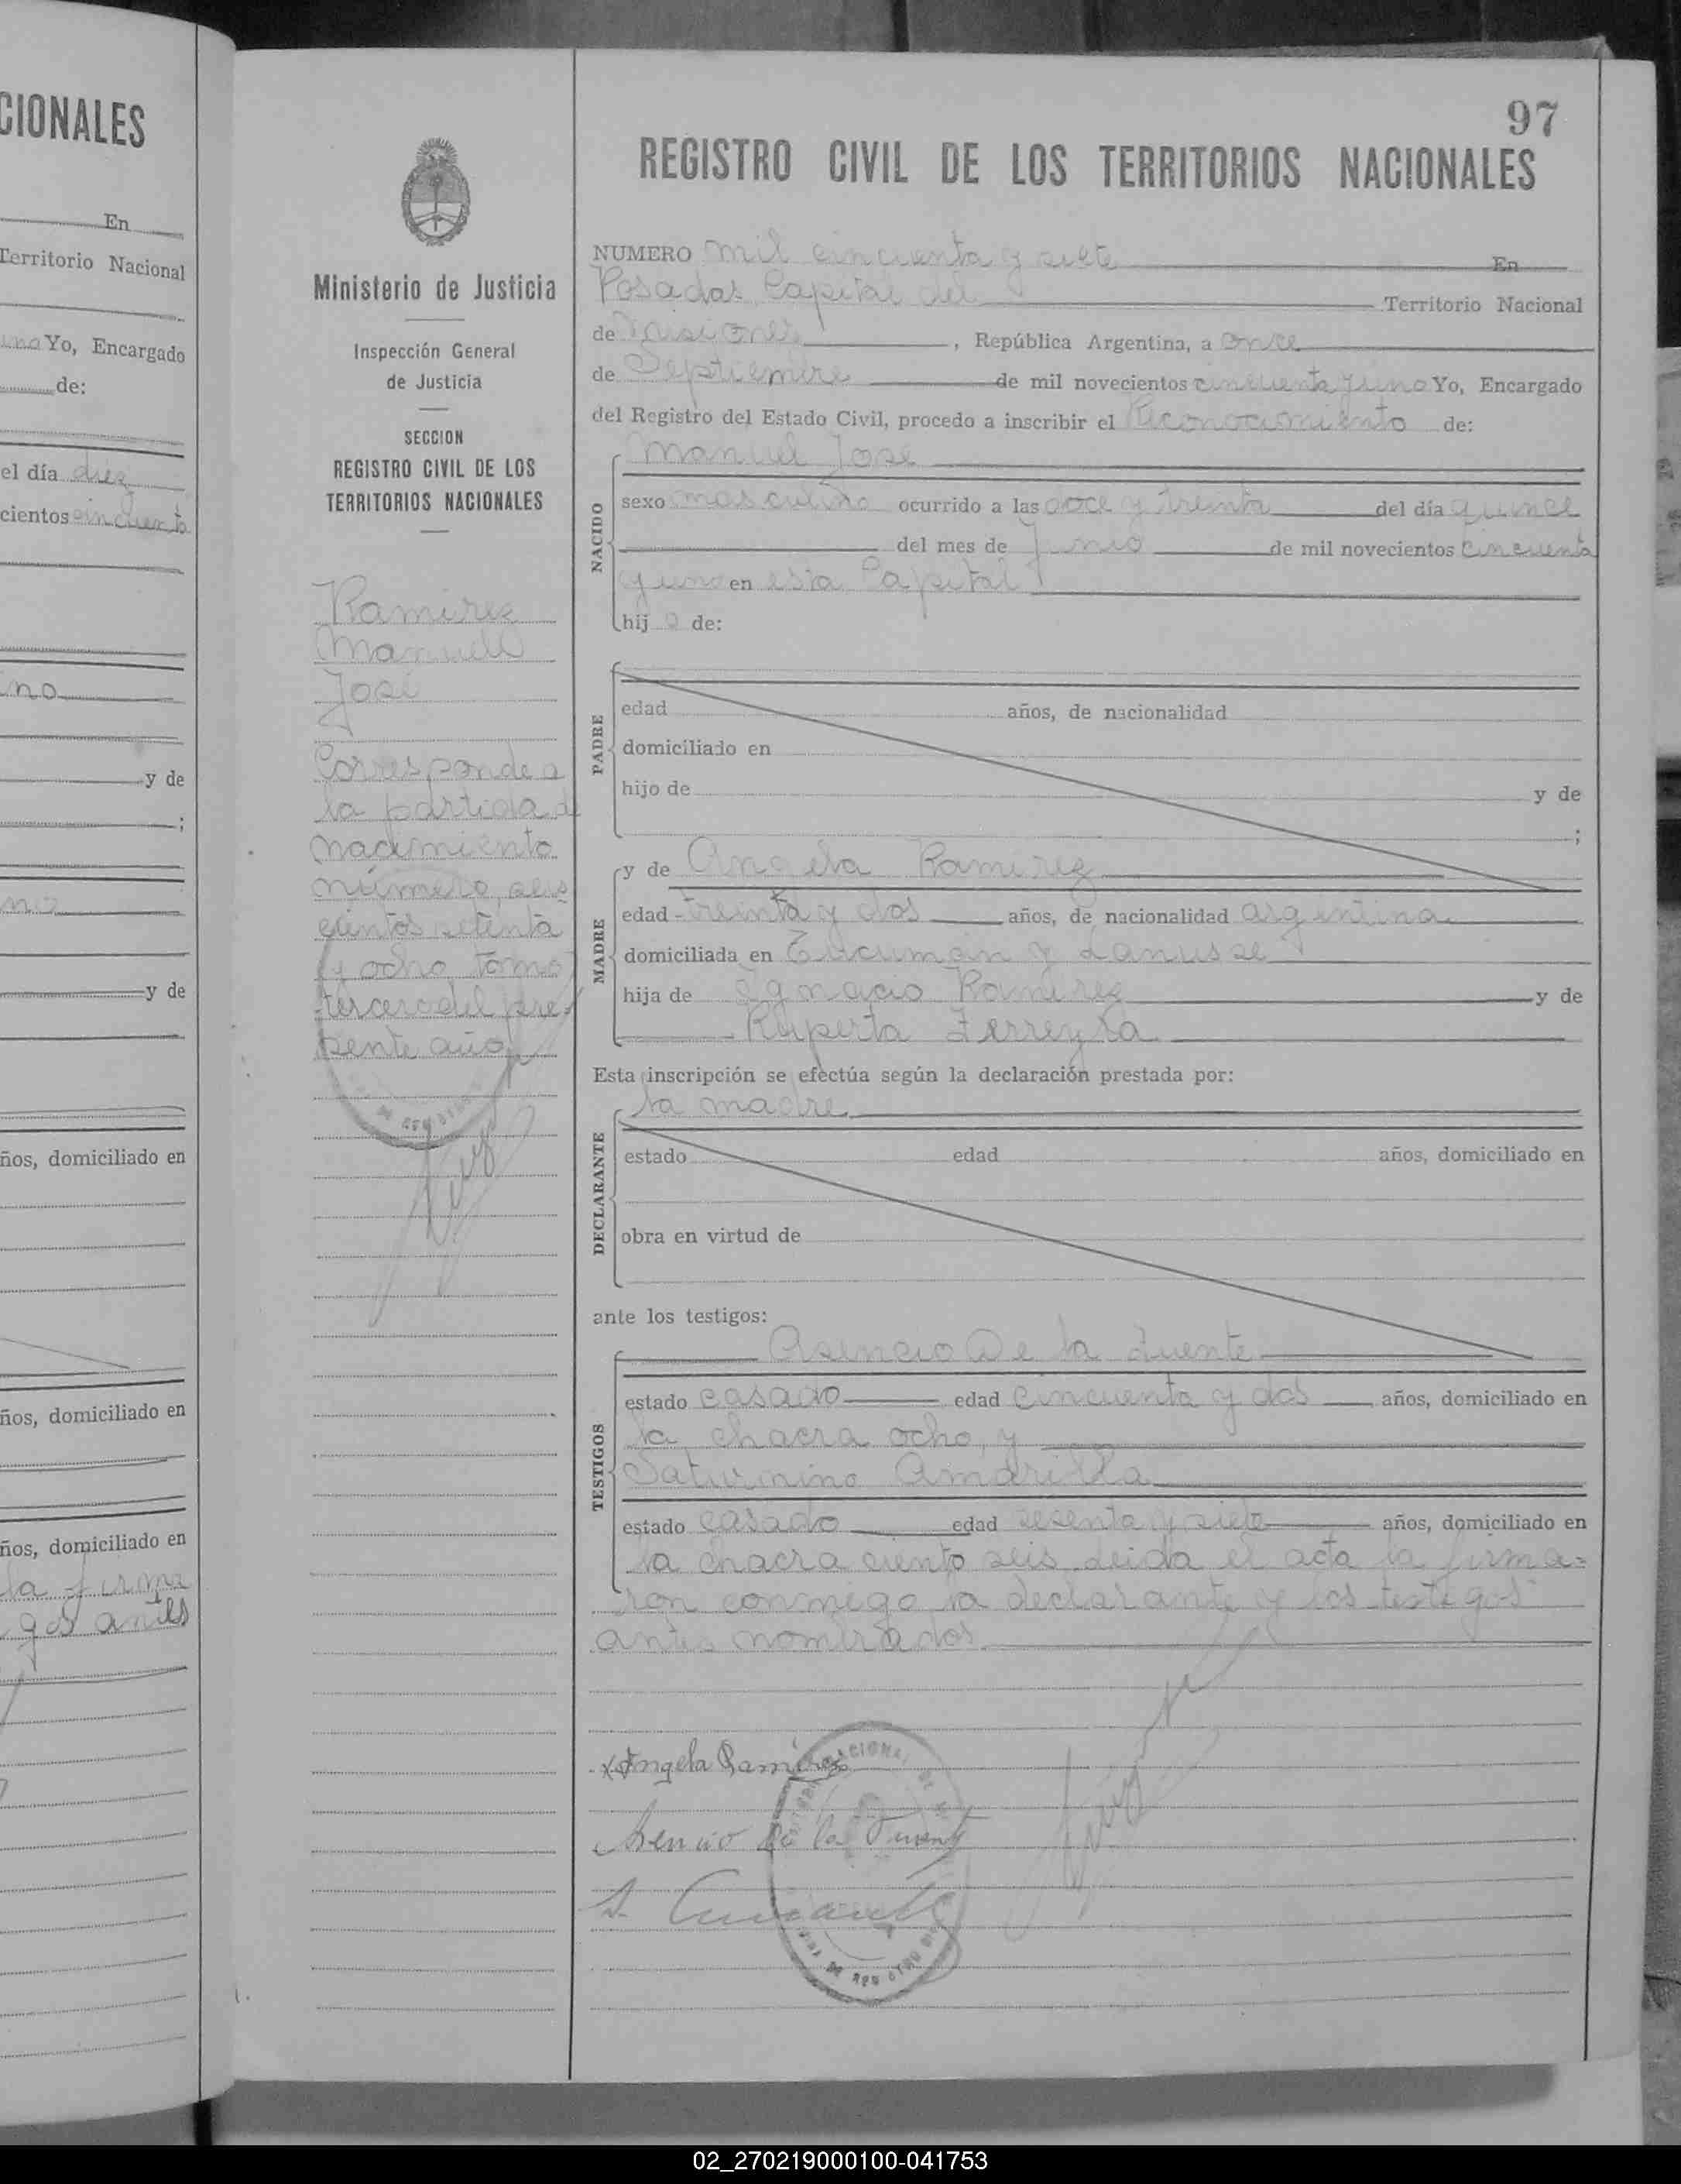 CIONALES
En
Territorio Nacional
Yo, Encargado
de:
el día diez
cientos cincuenta
no
y de
;
no
y de
ños, domiciliado en
ños, domiciliado en
ños, domiciliado en
la firma
gos antes
Ministerio de Justicia
Inspección General
de Justicia
SECCION
REGISTRO CIVIL DE LOS
TERRITORIOS NACIONALES
Ramirez
Manuel
José
Corresponde a
la partida d
nacimiento
número seis
cientos setenta
y ocho tomo
tercero del pre-
sente año
97
REGISTRO CIVIL DE LOS TERRITORIOS NACIONALES
NUMERO mil cincuenta y siete En
Posadas Capital del Territorio Nacional
de Misiones, República Argentina, a once
de Septiembre de mil novecientos cincuenta y uno Yo, Encargado
del Registro del Estado Civil, procedo a inscribir el Reconocimiento de:
Manuel José
NACIDO
sexo masculino ocurrido a las doce y treinta del día quince
del mes de Junio de mil novecientos cincuenta
y uno en esta Capital
hijo de:
PADRE
edad años, de nacionalidad
domiciliado en
hijo de y de
;
MADRE
y de Angela Ramirez
edad treinta y dos años, de nacionalidad argentina
domiciliada en Tucumán y Lanusse
hija de Ignacio Ramirez y de
Ruperta Ferreyra
Esta inscripción se efectúa según la declaración prestada por:
la madre
DECLARANTE
estado edad años, domiciliado en
obra en virtud de
ante los testigos:
Asencio De la Fuente
TESTIGOS
estado casado edad cincuenta y dos años, domiciliado en
la chacra ocho, y
Saturnino Amarilla
estado casado edad sesenta y siete años, domiciliado en
la chacra ciento seis. Leida el acta la firma=
ron conmigo la declarante y los testigos
antes nombrados
x Angela Ramirez
Asencio de la Fuente
S. Amarilla
02_270219000100-041753